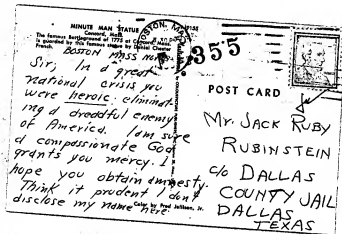 MINUTE MAN STATUE
Concord, Mass.
The famous Battleground of 1775 at Concord, Mass.
is guarded by this famous statue by Daniel Chester
French.
BOSTON, MASS
355
BOSTON MASS
Sir; In a great
national crisis you
were heroic eliminat-
ing a dreadful enemy
of America. I am sure
a compassionate God
grants you mercy. I
hope you obtain amnesty.
Think it prudent I don't
disclose my name here
Color by Fred
POST CARD
Mr. JACK RUBY
RUBINSTEIN
c/o DALLAS
COUNTY JAIL
DALLAS
TEXAS